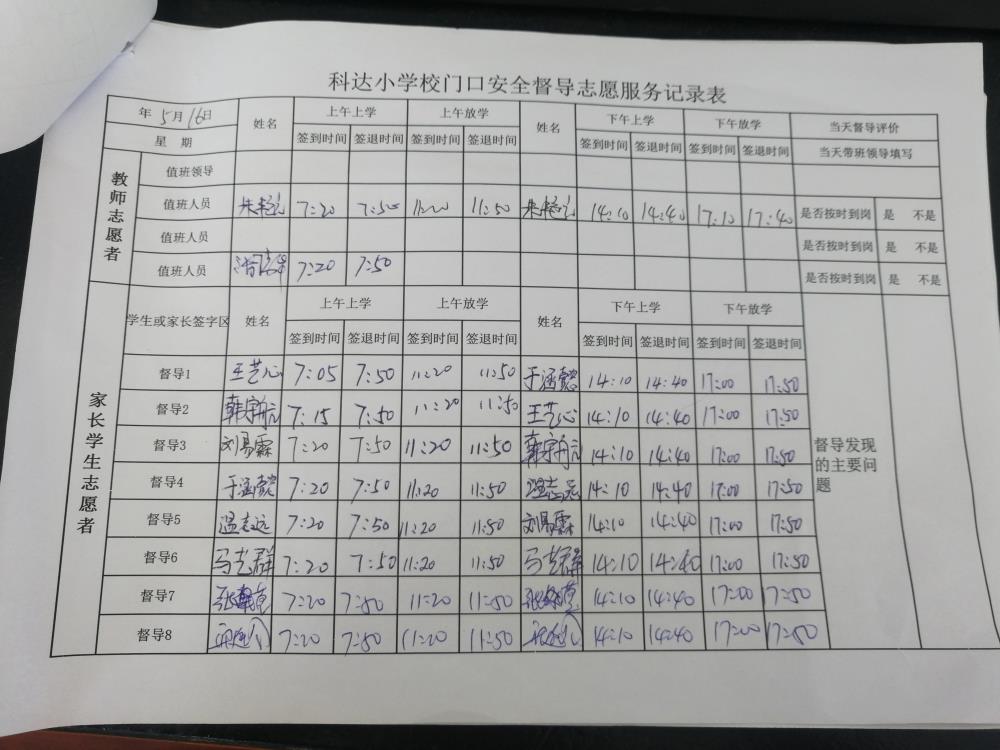 科达小学校门口安全督导志愿服务记录表
年 5月 16日 姓名 上午上学 上午放学 姓名 下午上学 下午放学 当天督导评价
星 期 签到时间 签退时间 签到时间 签退时间 签到时间 签退时间 签到时间 签退时间 当天带班领导填写
教师志愿者
值班领导
值班人员 7:20 7:50 11:20 11:50 14:10 14:40 17:10 17:40 是否按时到岗 是 不是
值班人员 是否按时到岗 是 不是
值班人员 7:20 7:50 是否按时到岗 是 不是
家长学生志愿者
学生或家长签字区 姓名 上午上学 上午放学 姓名 下午上学 下午放学
签到时间 签退时间 签到时间 签退时间 签到时间 签退时间 签到时间 签退时间
督导1 王艺心 7:05 7:50 11:20 11:50 于涵懿 14:10 14:40 17:00 17:50
督导2 韩宇航 7:15 7:50 11:20 11:50 王艺心 14:10 14:40 17:00 17:50
督导3 刘易霖 7:20 7:50 11:20 11:50 韩宇航 14:10 14:40 17:00 17:50
督导4 于涵懿 7:20 7:50 11:20 11:50 温志远 14:10 14:40 17:00 17:50
督导5 温志远 7:20 7:50 11:20 11:50 刘易霖 14:10 14:40 17:00 17:50
督导6 马艺群 7:20 7:50 11:20 11:50 马艺群 14:10 14:40 17:00 17:50
督导7 7:20 7:50 11:20 11:50 14:10 14:40 17:00 17:50
督导8 7:20 7:50 11:20 11:50 14:10 14:40 17:00 17:50
督导发现的主要问题